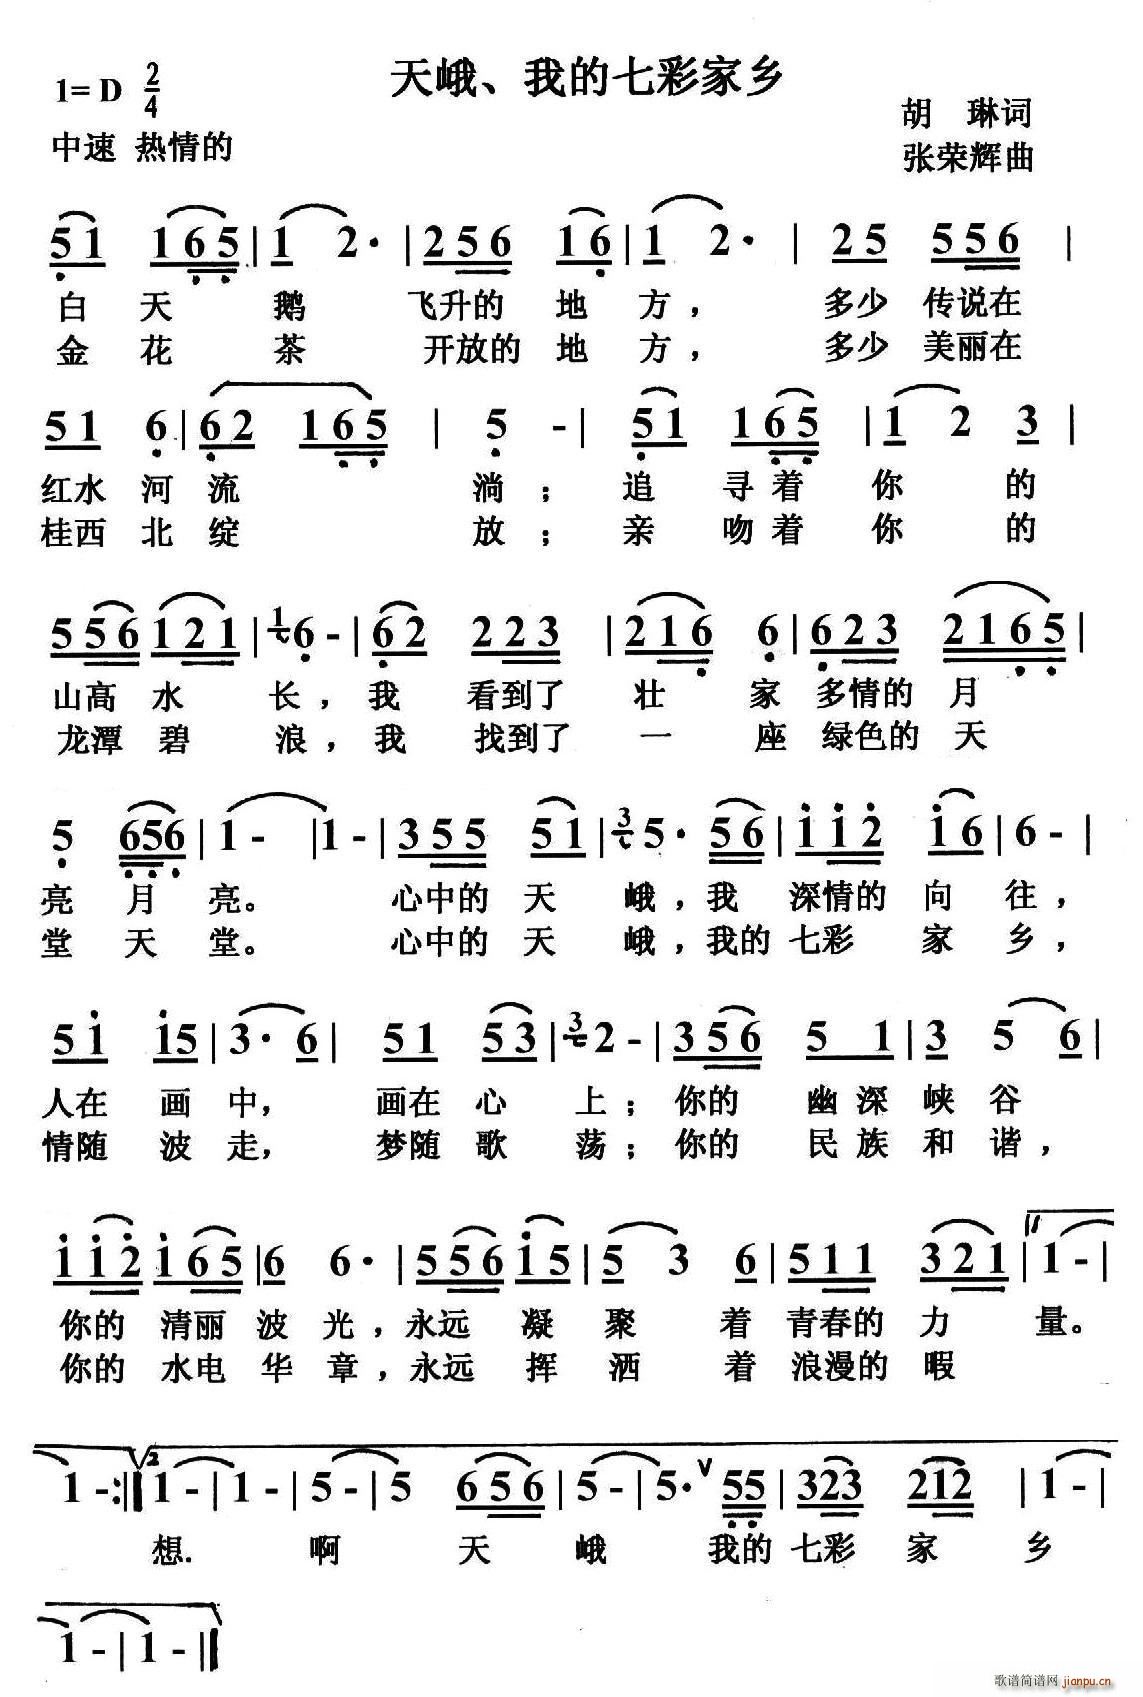 天峨、我的七彩家乡
1= D 2/4
中速 热情的
胡 琳词
张荣辉曲
5 1 1 6 5 | 1 2 · | 2 5 6 1 6 | 1 2 · | 2 5 5 5 6 |
白 天 鹅 飞升的 地 方， 多少 传说在
金 花 茶 开放的 地 方， 多少 美丽在
5 1 6 · | 6 2 1 6 5 | 5 - | 5 1 1 6 5 | 1 2 3 |
红水 河 流 淌； 追 寻 着 你 的
桂西 北 绽 放； 亲 吻 着 你 的
5 5 6 1 2 1 | 1 6 - | 6 2 2 2 3 | 2 1 6 6 | 6 2 3 2 1 6 5 |
山高 水 长，我 看到了 壮 家 多情的 月
龙潭 碧 浪，我 找到了 一 座 绿色的 天
5 6 5 6 | 1 - | 1 - | 3 5 5 5 1 | 3 5 · 5 6 | 1 1 2 1 6 | 6 - |
亮 月 亮。 心中的 天 峨，我 深情的 向 往，
堂 天 堂。 心中的 天 峨，我的 七彩 家 乡，
5 1 1 5 | 3 · 6 | 5 1 5 3 | 3 2 - | 3 5 6 5 1 | 3 5 6 |
人在 画 中， 画在 心 上；你的 幽 深 峡 谷
情随 波 走， 梦随 歌 荡；你的 民 族 和 谐，
1 1 2 1 6 5 | 6 6 · | 5 5 6 1 5 | 5 3 6 | 5 1 1 3 2 1 | 1 - |
你的 清丽 波 光，永远 凝 聚 着 青春的 力 量。
你的 水电 华 章，永远 挥 洒 着 浪漫的 暇
1 - :‖ 2 1 - | 1 - | 5 - | 5 6 5 6 | 5 - | 5 · V 5 5 | 3 2 3 2 1 2 | 1 - |
想. 啊 天 峨 我的 七彩 家 乡
1 - | 1 - ‖
歌谱简谱网 jianpu.cn